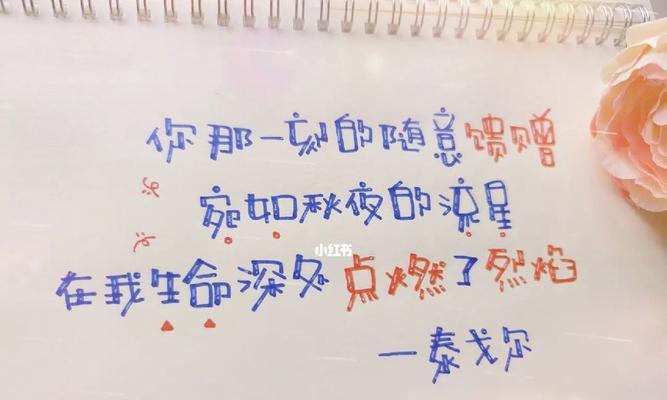 你那一刻的随意馈赠
宛如秋夜的流星
小红书
在我生命深处点燃了烈焰
一泰戈尔